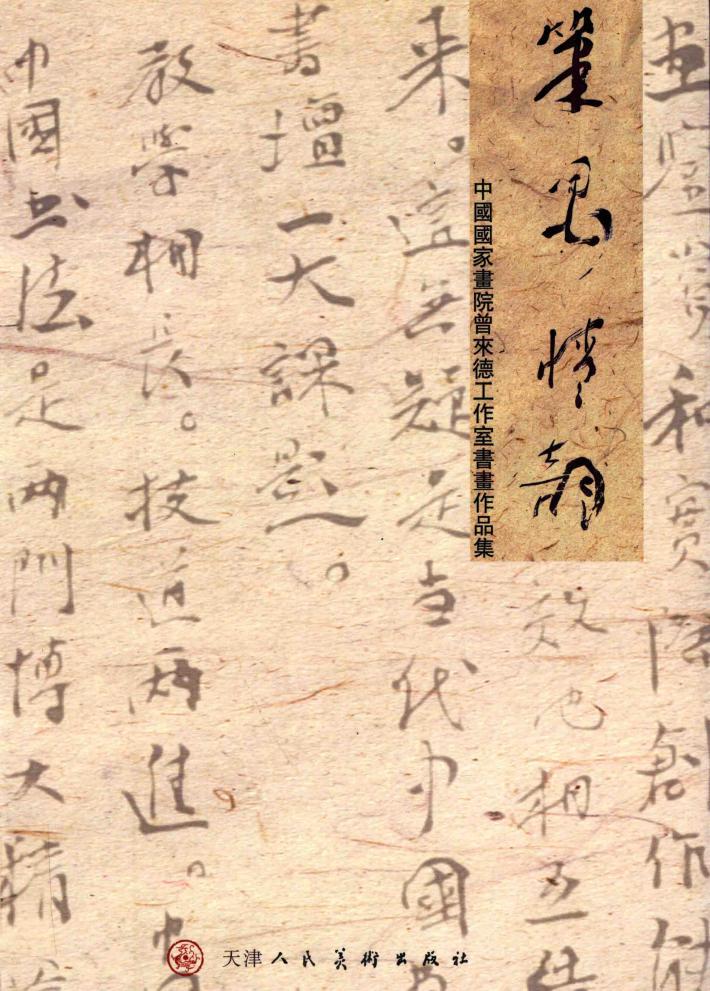 和實際創作
筆墨情韵
中國國家畫院曾來德工作室書畫作品集
效也相互
来。這無疑是当代中國
書壇一大課題。
教學相長。技道两進。中
中國书法是两門博大精
天津人民美術出版社